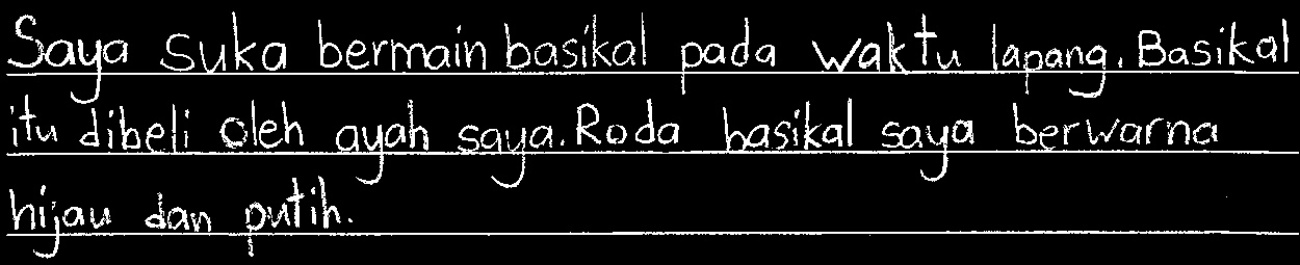 Saya suka bermain basikal pada waktu lapang. Basikal
itu dibeli oleh ayah saya. Roda basikal saya berwarna
hijau dan putih.